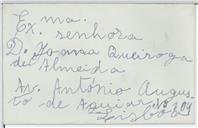 Ex.ma.
senhora
D. Joana Queiroga
de Almeida
Av. António Augus-
to de Aguiar
Lisboa